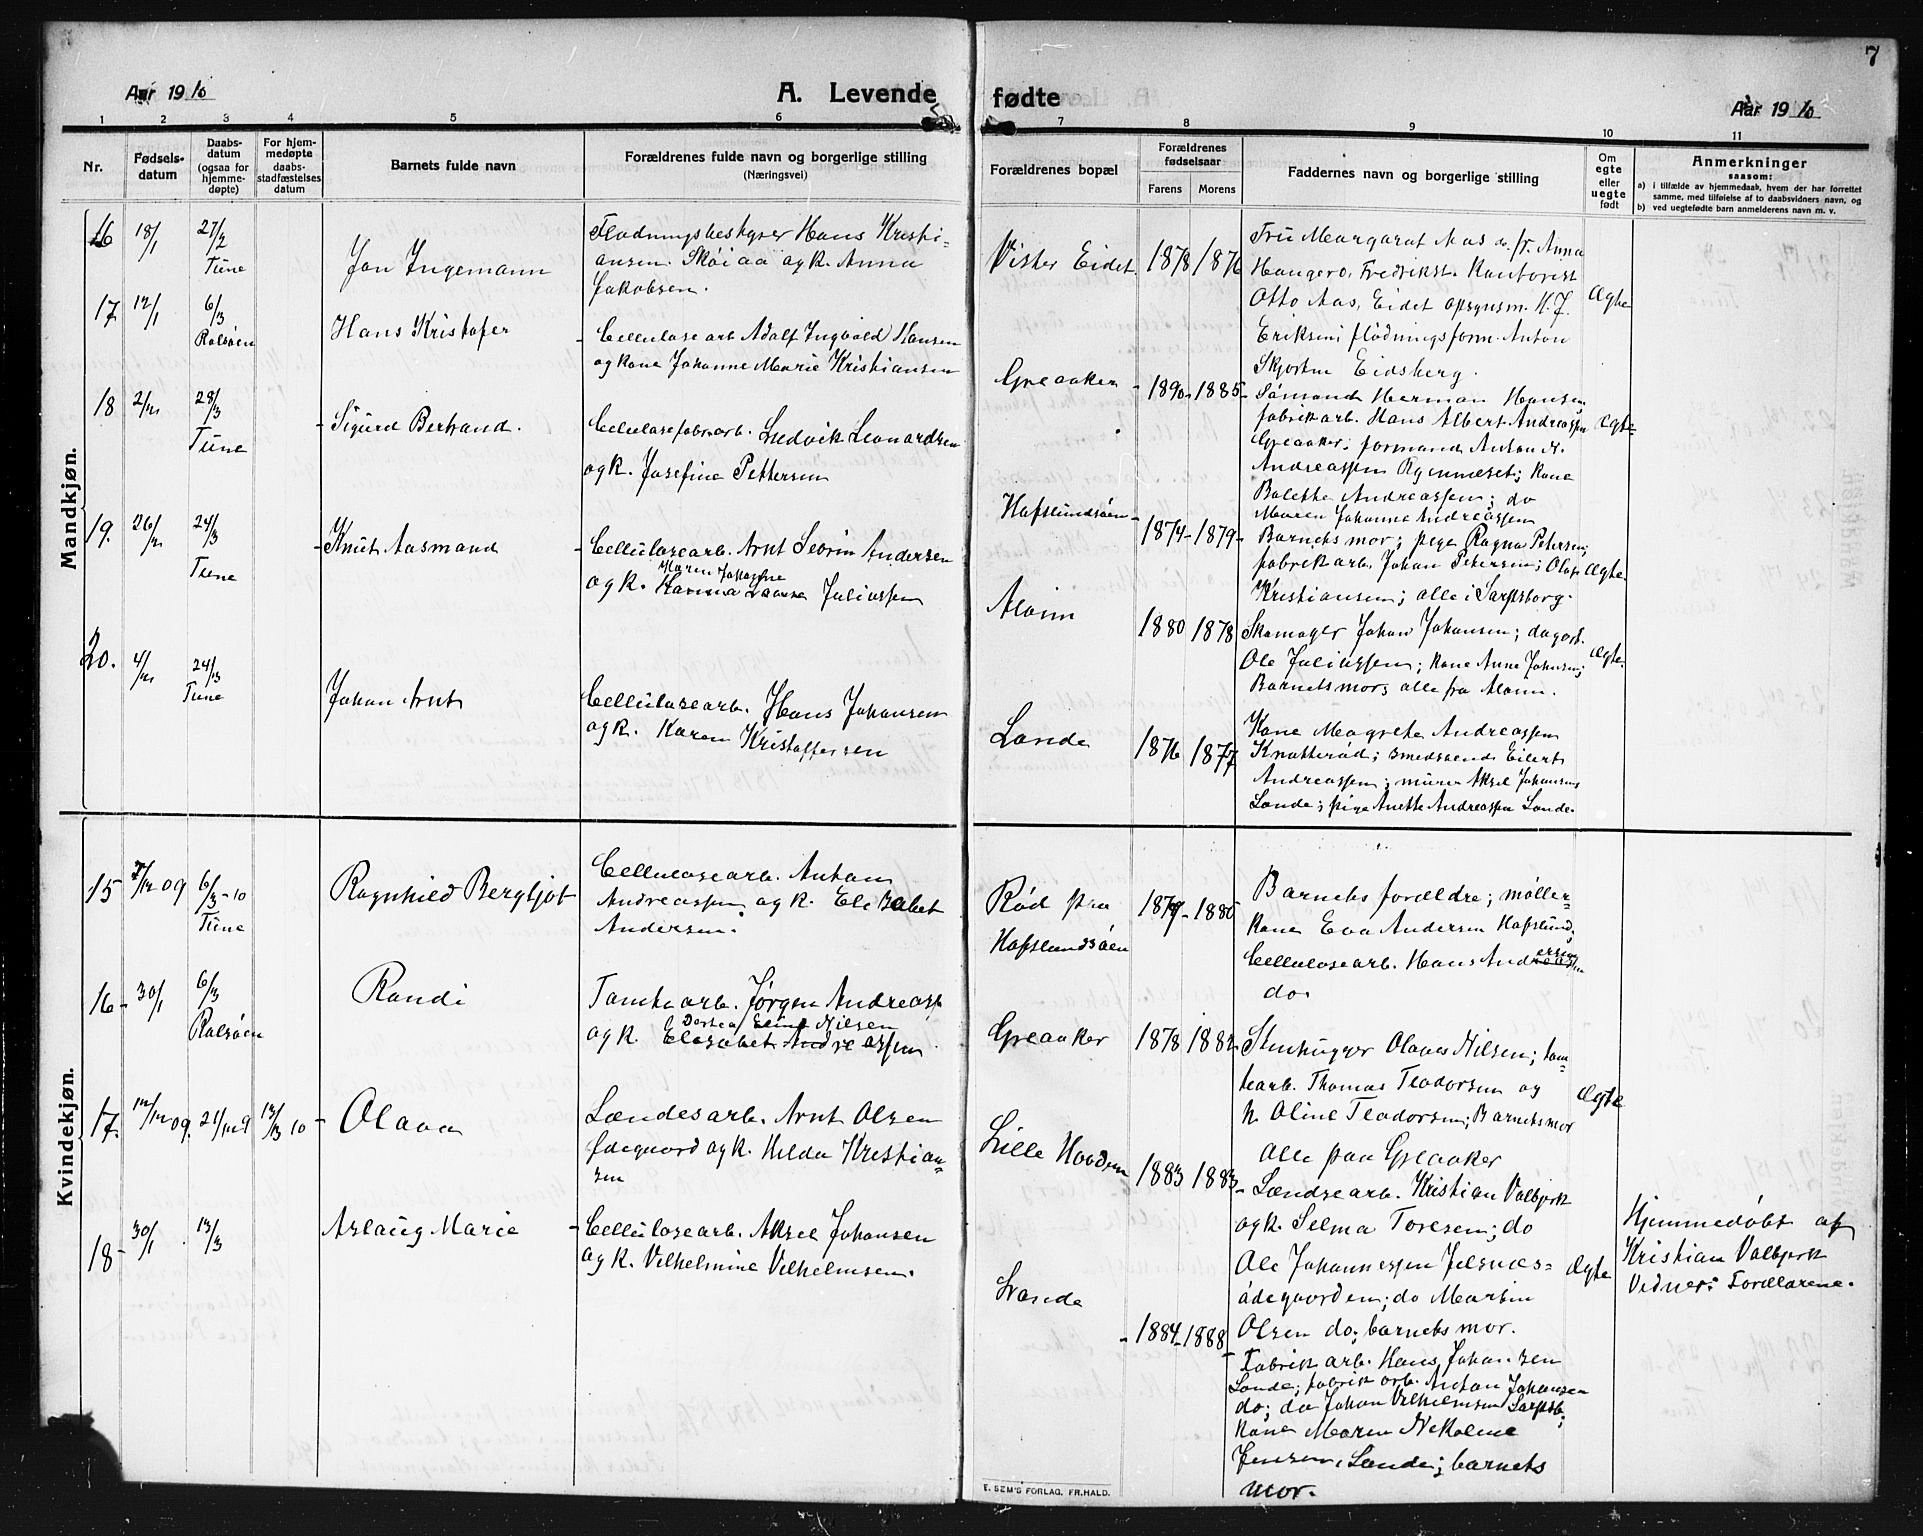 7
Aar 1910
A. Levende
fødte
Aar 1910
1 2 3 4 5 6 7 8 9 10 11
Nr.
Fødsels-
datum
Daabs-
datum
(ogsaa for
hjemme-
døpte)
For hjem-
medøpte
daabs-
stadfæstelses
datum
Barnets fulde navn
Forældrenes fulde navn og borgerlige stilling
(Næringsvei)
Forældrenes bopæl
Forældrenes
fødselsaar
Farens Morens
Faddernes navn og borgerlige stilling
Om
egte
eller
uegte
født
Anmerkninger
saasom:
a) i tilfælde av hjemmedaab, hvem der har forrettet
samme, med tilføielse af to daabsvidners navn, og
b) ved uegtefødte barn anmelderens navn m. v.
Mandkjøn.
16 18/1 27/2
Tune
Jon Ingemann
Flødningsbestyrer Hans Kristi-
ansen Sköiaa og k. Anna
Jakobsen.
Vister Eidet. 1878 1876
Fru Margarat Aas do. fr. Anna
Haugero, Fredrikst. Kantorist
Otto Aas, Eidet opsynsm. K. J.
Eriksen; flødningsform. Anton
Eidsberg.
Ægte
17 12/1 6/3
Rolsöen
Hans Kristofer
Cellulose arb. Adolf Ingvald Hansen
og kone Johanne Marie Kristiansen
Greaaker - 1890 - 1885 -
Sömand Herman Hansen;
fabrikarb. Hans Albert Andreassen
Greaaker; formand Anton N.
Andreassen; kone
Bolette Andreassen; do
Maren Johanne Andreassen
Ægte
18 2/12 28/3
Tune
- Sigurd Bertrand.
Cellulosefabr.arb. Ludvik Leonardsen
og k. Josefine Pettersen
Hafslundsöen - 1874 - 1879 -
Barnets mor; pige Ragna Petersen;
fabrikarb. Johan Petersen; Olaf
Kristiansen; alle i Sarpsborg.
Ægte.
19. 26/12 24/3
Tune
- Knut Aasmand
- Cellulosearb. Arnt Severin Andersen
Maren Johanne
og k. Hanna Juliassen
Aloim 1880 1878
Skomager Johan Johansen; dagarb.
Ole Juliassen; kone Anne Johansen;
Barnets mor; alle fra Aloim.
Ægte.
20. 4/12 24/3
Tune
Johan Arnt
Cellulosearb. Hans Johansen
og k. Karen Kristoffersen
Lande 1876 1877
Kone Magrete Andreassen
Knatteröd; smedsvend Eilert
Andreassen; murer Aksel Johansen
Lande; pige Anette Andreassen Lande.
Kvindekjøn.
15 7/12 09 6/3 - 10
Tune
Ragnhild Bergljot
Cellulosearb. Anton
Andreassen og k. Elesabet
Andersen.
Röd paa
Hafslundsöen
1879 - 1880
Barnets forældre; møller-
kone Eva Andersen Hafslund;
Cellulosearb. Hans Andersen
do.
16 - 30/1 6/3
Rolsöen
Randi
Tomtearb. Jörgen Andreass
Dortea Eline Nilsen
og k. Elesabet Andreassen
Greaaker 1878 1882
Stenhugger Olaves Nilsen; tom-
tearb. Thomas Teodorsen og
k. Oline Teodorsen; Barnets mor
Alle paa Greaaker
Ægte
17. 12/12 09. 21/12 9 13/3 10 -
Olava
Lændesarb. Arnt Olsen
Ødegaard og k. Hilda Kristian-
sen
Lille 1883 1883 -
Lændsearb. Kristian Valbjørk
og k. Selma Toresen; do
Ole Johannessen Jelsnes-
ödegaarden; do Martin
Olsen do; barnets mor.
Ægte
Hjemmedöbt af
Kristian Valbjørk
Vidner: Forældrene.
18 - 30/1 13/3
Aslaug Marie
- Cellulosearb. Aksel Johansen
og k. Vilhelmine Vilhelmsen.
Lande - 1884 - 1888 -
Fabrikarb. Hans Johansen
Lande; fabrikarb. Anton Johansen
do; do Johan Vilhelmsen Sarpsb.;
Kone Maren Nikoline
Jensen, Lande; barnets
mor.
E. SEM'S FORLAG, FR.HALD.